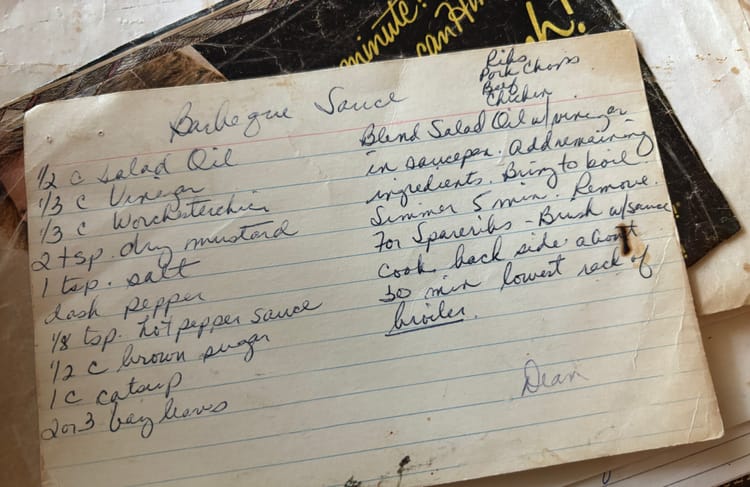 minute!
can
h!
Barbeque Sauce
Ribs
Pork Chops
Beef
Chicken
1/2 c Salad Oil
1/3 c Vinegar
1/3 c Worchesterchir
2 tsp. dry mustard
1 tsp. salt
dash pepper
1/8 tsp. hot pepper sauce
1/2 c brown sugar
1 c catsup
2 or 3 bay leaves
Blend Salad Oil w/ vinegar
in saucepan. Add remaining
ingredients. Bring to boil
Simmer 5 min. Remove.
For Spareribs - Brush w/ sauce
cook back side about
30 min lowest rack of
broiler.
Dean